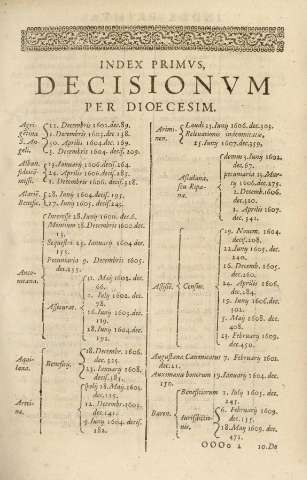 INDEX PRIMVS,
DECISIONVM
PER DIOECESIM.
Agri-
gētina
S. An-
geli.
11. Decembris 1602. dec. 89.
1. Decembris 1603. dec. 158.
30. Aprilis 1604. dec. 169.
3. Decembris 1604. decis. 209.
Alban.
19. Ianuarij 1606. decis. 264.
24. Aprilis 1606. decis. 285.
1. Decembris 1606. decis. 318.
28. Iunij 1604. decis. 195.
Benefic.
27. Iunij 1605. decis. 245.
Anco-
nitana.
Interesse 28. Iunij 1600. dec. 6.
Monitum 16. Decembris 1600. dec.
15.
Sequestri 23. Ianuarij 1604. dec.
155.
Pecuniaria 9. Decembris 1605.
dec. 255.
Assecurat.
31. Maij 1602. dec.
66.
2. Iulij 1602. dec.
78.
16. Iunij 1603. dec.
129.
28. Iunij 1604. dec.
192.
Aqui-
lana.
Beneficij.
18. Decembr. 1606.
dec. 325.
23. Ianuarij 1608.
decis. 383.
Areti-
na.
spolij 28. Maij 1603.
dec. 125.
12. Decembr. 1603.
dec. 141.
9. Iunij 1604. decis.
182.
Arimi-
nen.
Laudi 23. Iunij 1606. dec. 305.
Relaxationis indemnitatis,
25. Iunij 1607. dec. 359.
Assalana,
seu Ripa-
na.
domus 5. Iunij 1602.
dec. 67.
pecuniaria 13. Mar-
tij 1606. dec. 275.
1. Decemb. 1606.
dec. 320.
2. Aprilis 1607.
dec. 342.
Assisij.
Census.
19. Novem. 1604.
decis. 208.
22. Iunij 1605. dec.
240.
16. Decemb. 1605.
dec. 260.
24. Aprilis 1606.
dec. 284.
19. Iunij 1606. dec.
302.
5. Maij 1608. dec.
408.
23. Februarij 1609.
dec. 450.
Augustana Canonicatus 7. Februarij 1602.
dec. 21.
Auximana bonorum 19. Ianuarij 1604. dec.
150.
Baren.
Beneficiorum 2. Iulij 1605. dec.
245.
Iurisdictio-
nis.
6. Februarij 1609.
dec. 135.
18. Maij 1609. dec.
472.
OOOo 2
10. De